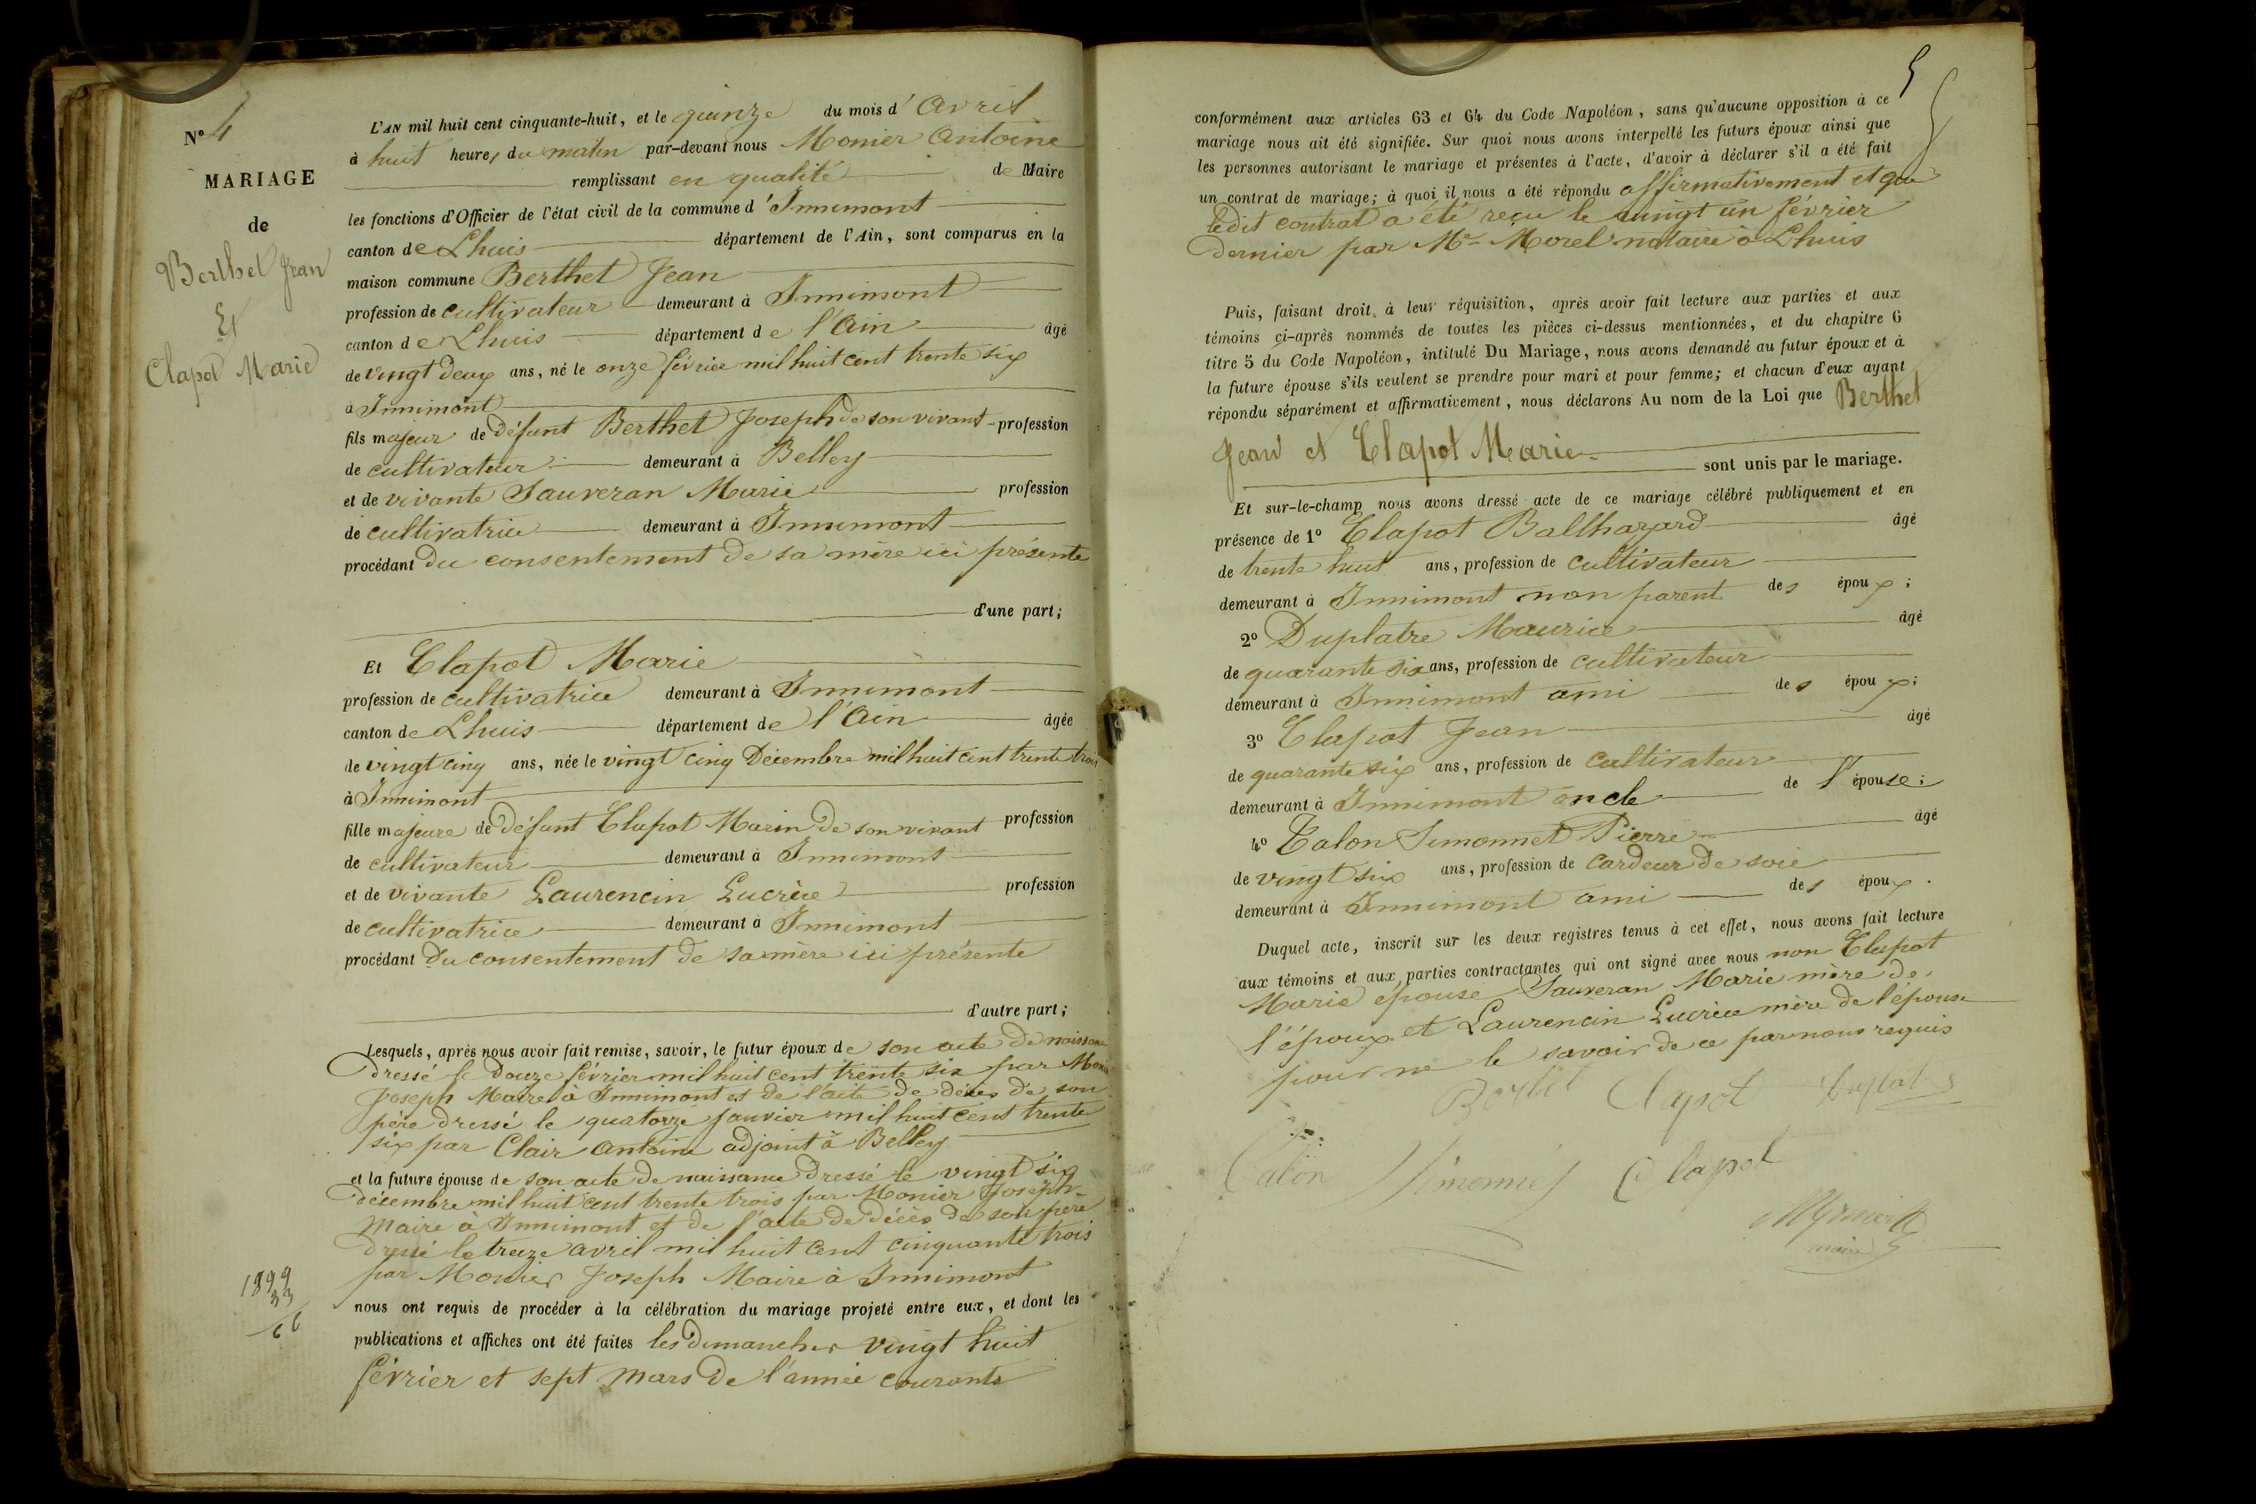 N° 4
MARIAGE
de
Berthet Jean
Et
Clapot Marie
L'AN mil huit cent cinquante-huit, et le quinze du mois d'Avril
à huit heures du matin par-devant nous Monier Antoine
remplissant en qualité de Maire
les fonctions d'Officier de l'état civil de la commune d'Innimont
canton de Lhuis département de l'Ain, sont comparus en la
maison commune Berthet Jean
profession de cultivateur demeurant à Innimont
canton de Lhuis département de l'Ain âgé
de vingt deux ans, né le onze février mil huit cent trente six
à Innimont
fils majeur de défunt Berthet Joseph de son vivant profession
de cultivateur demeurant à Belley
et de vivante Sauveran Marie profession
de cultivatrice demeurant à Innimont
procédant du consentement de sa mère ici présente
d'une part;
Et Clapot Marie
profession de cultivatrice demeurant à Innimont
canton de Lhuis département de l'Ain âgée
de vingt cinq ans, née le vingt cinq Décembre mil huit cent trente trois
à Innimont
fille majeure de défunt Clapot Marin de son vivant profession
de cultivateur demeurant à Innimont
et de vivante Laurencin Lucrèce profession
de cultivatrice demeurant à Innimont
procédant Du consentement de sa mère ici présente
d'autre part;
Lesquels, après nous avoir fait remise, savoir, le futur époux de son acte de naissance
dressé le douze février mil huit cent trente six par Monier
Joseph Maire à Innimont et de l'acte de décès de son
père dressé le quatorze janvier mil huit cent trente
six par Clair Antoine adjoint à Belley
et la future épouse de son acte de naissance dressé le vingt six
décembre mil huit cent trente trois par Monier Joseph
Maire à Innimont et de l'acte de décès de son père
dressé le treize avril mil huit cent cinquante trois
par Monier Joseph Maire à Innimont
nous ont requis de procéder à la célébration du mariage projeté entre eux, et dont les
publications et affiches ont été faites les dimanches vingt huit
février et sept Mars de l'année courante
1899
33
66
5
conformément aux articles 63 et 64 du Code Napoléon, sans qu'aucune opposition à ce
mariage nous ait été signifiée. Sur quoi nous avons interpellé les futurs époux ainsi que
les personnes autorisant le mariage et présentes à l'acte, d'avoir à déclarer s'il a été fait
un contrat de mariage; à quoi il nous a été répondu affirmativement et que
ledit contrat a été reçu le vingt un février
dernier par Me Morel notaire à Lhuis
Puis, faisant droit à leur réquisition, après avoir fait lecture aux parties et aux
témoins ci-après nommés de toutes les pièces ci-dessus mentionnées, et du chapitre 6
titre 5 du Code Napoléon, intitulé Du Mariage, nous avons demandé au futur époux et à
la future épouse s'ils veulent se prendre pour mari et pour femme; et chacun d'eux ayant
répondu séparément et affirmativement, nous déclarons Au nom de la Loi que Berthet
Jean et Clapot Marie
sont unis par le mariage.
Et sur-le-champ nous avons dressé acte de ce mariage célébré publiquement et en
présence de 1° Clapot Balthazard âgé
de trente huit ans, profession de cultivateur
demeurant à Innimont non parent des époux;
2° Duplatre Maurice âgé
de quarante six ans, profession de cultivateur
demeurant à Innimont ami des époux;
3° Clapot Jean âgé
de quarante six ans, profession de cultivateur
demeurant à Innimont oncle de l'épouse;
4° Calon Simonnet Pierre âgé
de vingt six ans, profession de cardeur de soie
demeurant à Innimont ami des époux.
Duquel acte, inscrit sur les deux registres tenus à cet effet, nous avons fait lecture
aux témoins et aux parties contractantes qui ont signé avec nous non Clapot
Marie épouse Sauveran Marie mère de
l'époux et Laurencin Lucrèce mère de l'épouse
pour ne le savoir de ce par nous requis
Berthet Clapot
Calon Clapot
maire